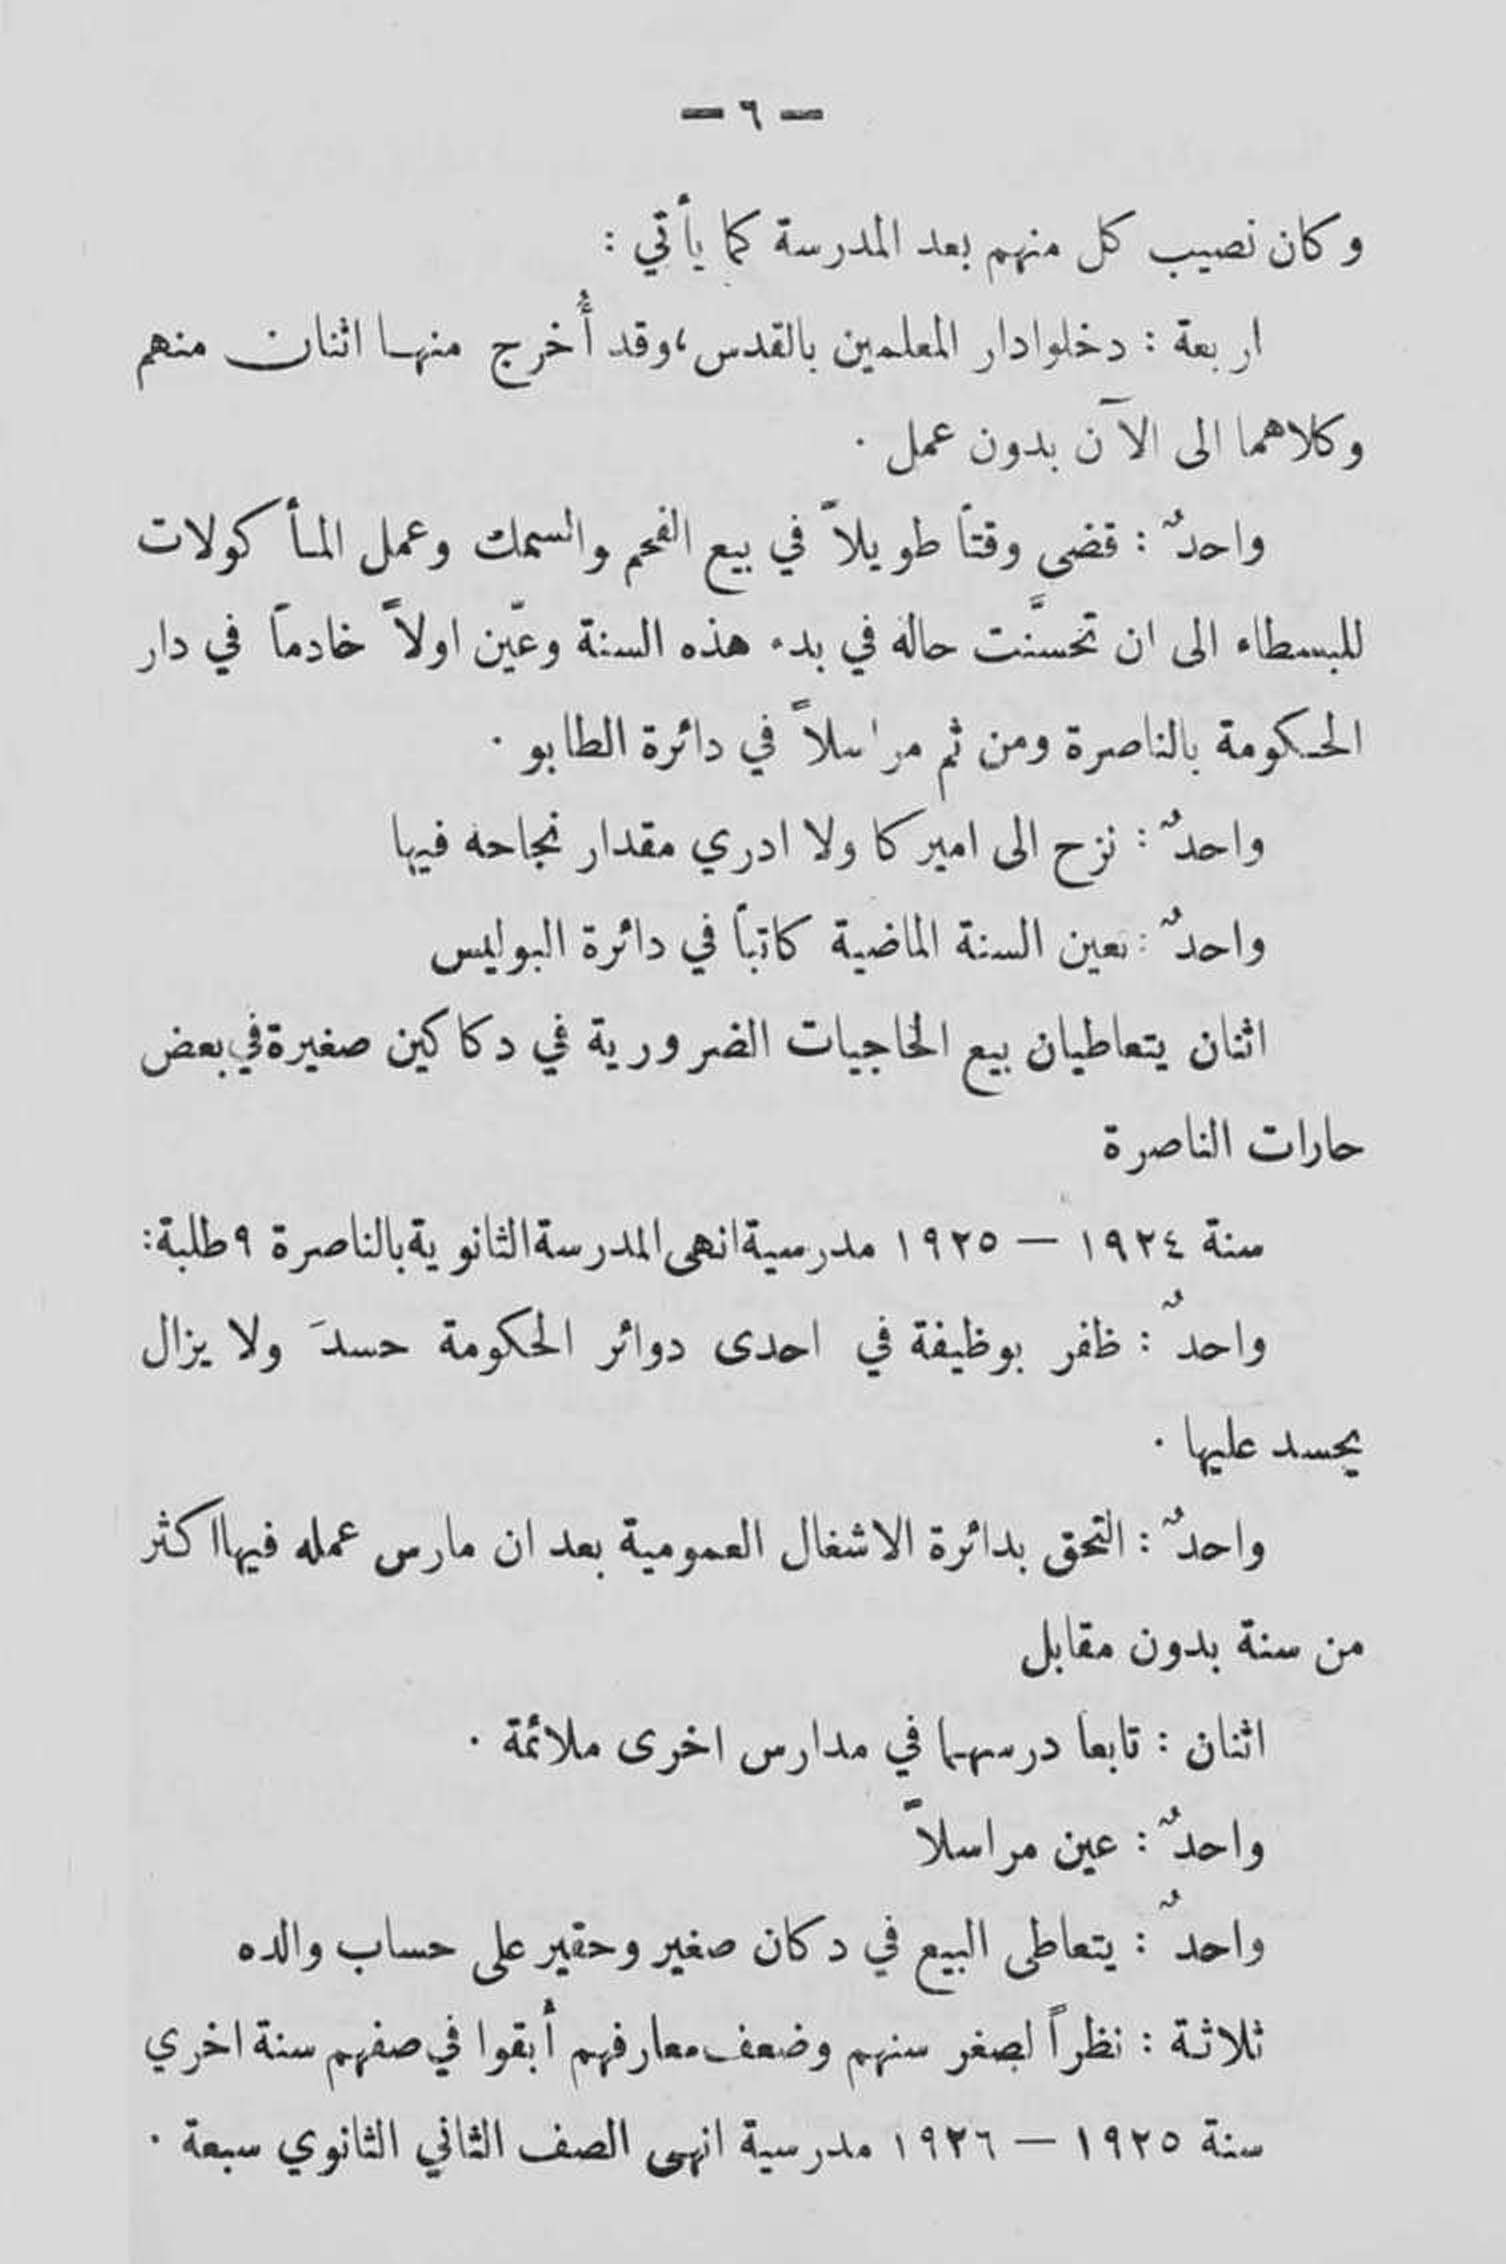 — ٦ —
وكان نصيب كل منهم بعد المدرسة كما يأتي :
اربعة : دخلوا دار المعلمين بالقدس، وقد أُخرج منها اثنان منهم
وكلاهما الى الآن بدون عمل .
واحدٌ : قضى وقتاً طويلاً في بيع الفحم والسمك وعمل المأكولات
للبسطاء الى ان تحسَّنت حاله في بدء هذه السنة وعيّن اولاً خادماً في دار
الحكومة بالناصرة ومن ثم مراسلاً في دائرة الطابو .
واحدٌ : نزح الى اميركا ولا ادري مقدار نجاحه فيها
واحدٌ : تعين السنة الماضية كاتباً في دائرة البوليس
اثنان يتعاطيان بيع الحاجيات الضرورية في دكاكين صغيرة في بعض
حارات الناصرة
سنة ١٩٢٤ — ١٩٢٥ مدرسية انهى المدرسة الثانوية بالناصرة ٩ طلبة :
واحدٌ : ظفر بوظيفة في احدى دوائر الحكومة حسدَ ولا يزال
يحسد عليها .
واحدٌ : التحق بدائرة الاشغال العمومية بعد ان مارس عمله فيها اكثر
من سنة بدون مقابل
اثنان : تابعا درسهما في مدارس اخرى ملائمة .
واحدٌ : عين مراسلاً
واحدٌ : يتعاطى البيع في دكان صغير وحقير على حساب والده
ثلاثة : نظراً لصغر سنهم وضعف معارفهم أبقوا في صفهم سنة اخري
سنة ١٩٢٥ — ١٩٢٦ مدرسية انهى الصف الثاني الثانوي سبعة .